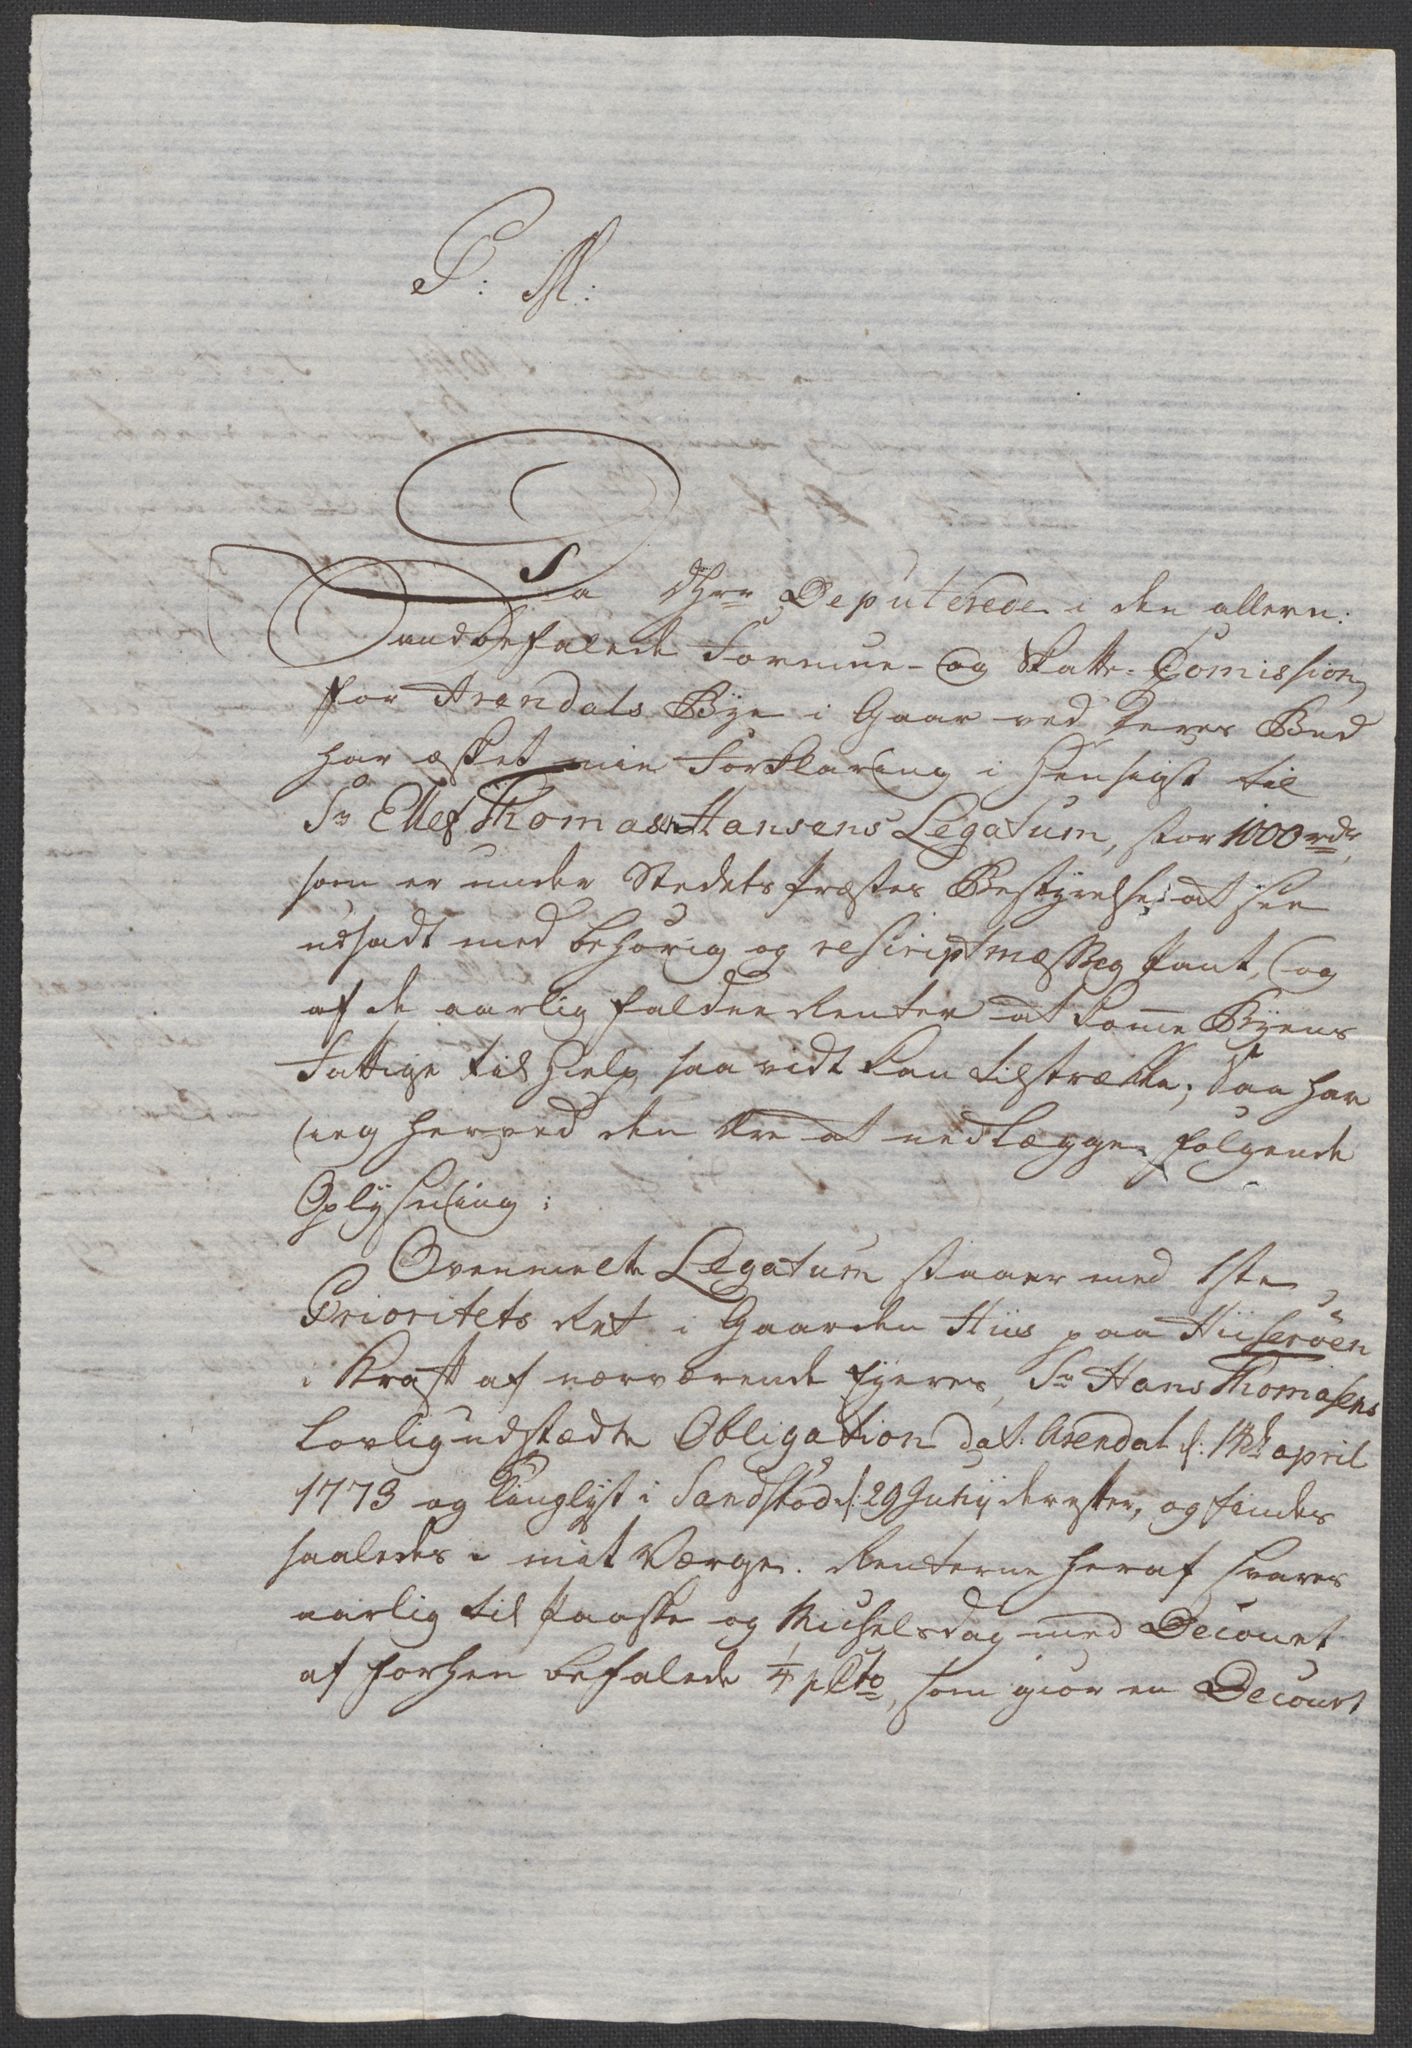 P: M:
Da dHrr Deputerede i den allern:
andbefalede Formue- og Skatte-Comission
for Arendals Bye i Gaar ved Deres Bud
har æsket min Forklaring i Hensigt til
Sr Ellef Thomas Hansens Legatum, stor 1000 rdr,
som er under Stedets Præstes Bestyrelse, at see
udsadt med behørig og rescriptmæssig Pant, og
af de aarlig faldne Renter at komme Byens
Fattige til Hielp saa vidt kan tilstrække; Saa har
ieg herved den Ære at nedlægge følgende
Oplysning:
Ovenmelte Legatum staaer med 1ste
Prioritets Ret i Gaarden Hiis paa Hiiserøen
i Kraft af nærværende Eyeres, Sr Hans Thomasens
Lovlig udstædte Obligation dat: Arendal d: 14de april
1773 og tinglyst i Sandstød d: 29 Julij derefter, og findes
saaledes i mit Værge. Renterne heraf svares
aarlig til Paaske og Michelsdag med Decourt
af forhen befalede 1/4 pCto, som giør en Decourt